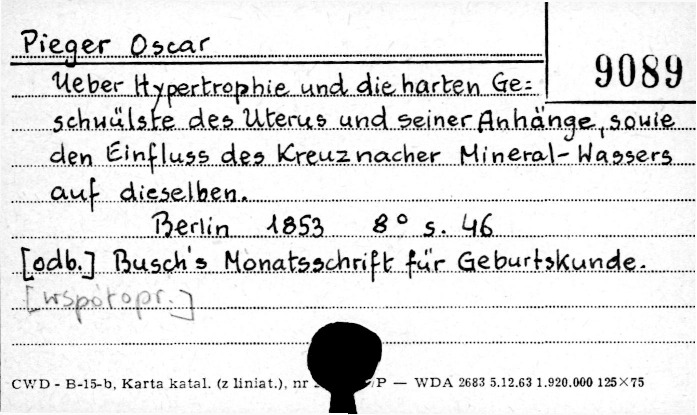 Pieger Oscar
9089
Ueber Hypertrophie und die harten Ge=
schwülste des Uterus und seiner Anhänge, sowie
den Einfluss des Kreuznacher Mineral-Wassers
auf dieselben.
Berlin 1853 8° s. 46
[odb.] Busch's Monatsschrift für Geburtskunde.
[współopr.]
CWD - B-15-b, Karta katal. (z liniat.), nr /P — WDA 2683 5.12.63 1.920.000 125×75